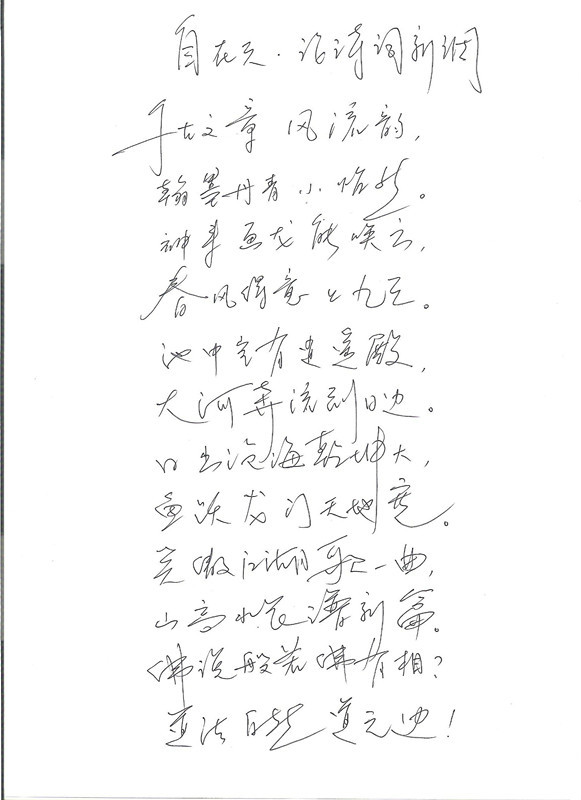 自在天·论诗词新调
千古文章风流韵，
翰墨丹青小恰然。
神来画龙能唤云，
春风得意上九天。
池中宝有逍遥殿，
大河奔流到日边。
日出沧海乾坤大，
鱼跃龙门天地宽。
笑傲江湖歌一曲，
山高水长谱新篇。
佛说般若佛有相？
道法自然道无边！